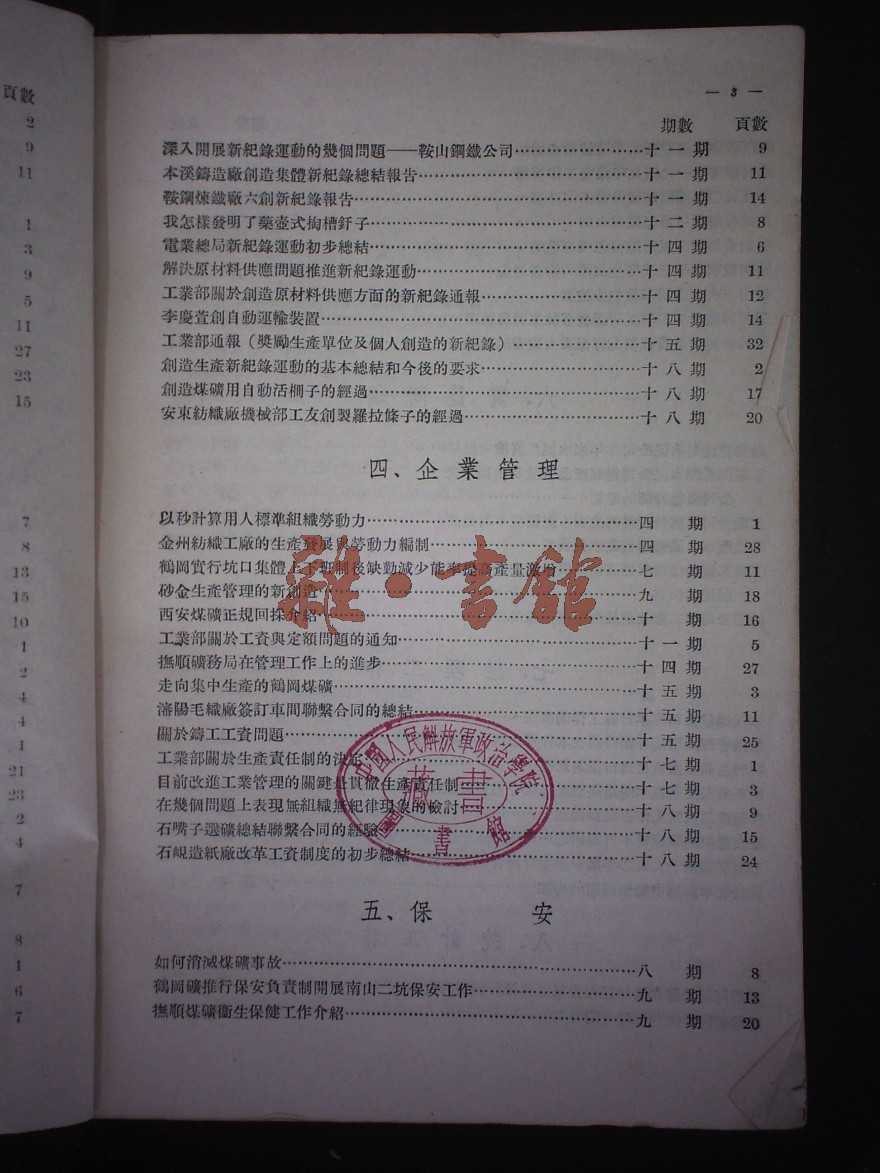 頁數
2
9
11
1
3
9
5
11
27
23
15
7
8
13
15
10
1
2
4
4
1
21
23
2
4
7
8
1
6
7
— 3 —
期數 頁數
深入開展新紀錄運動的幾個問題——鞍山鋼鐵公司…………十一期 9
本溪鑄造廠創造集體新紀錄總結報告…………十一期 11
鞍鋼煉鐵廠六創新紀錄報告…………十一期 14
我怎樣發明了藥壺式掏槽釺子…………十二期 8
電業總局新紀錄運動初步總結…………十四期 6
解決原材料供應問題推進新紀錄運動…………十四期 11
工業部關於創造原材料供應方面的新紀錄通報…………十四期 12
李慶萱創自動運輸裝置…………十四期 14
工業部通報（獎勵生產單位及個人創造的新紀錄）…………十五期 32
創造生產新紀錄運動的基本總結和今後的要求…………十八期 2
創造煤礦用自動活棚子的經過…………十八期 17
安東紡織廠機械部工友創製羅拉條子的經過…………十八期 20
四、企業管理
以秒計算用人標準組織勞動力…………四期 1
金州紡織工廠的生產發展與勞動力編制…………四期 28
鶴岡實行坑口集體上下班制後缺勤減少能率提高產量激增…………七期 11
砂金生產管理的新創造…………九期 18
西安煤礦正規回採介紹…………十期 16
工業部關於工資與定額問題的通知…………十一期 5
撫順礦務局在管理工作上的進步…………十四期 27
走向集中生產的鶴岡煤礦…………十五期 3
瀋陽毛織廠簽訂車間聯繫合同的總結…………十五期 11
關於鑄工工資問題…………十五期 25
工業部關於生產責任制的決定…………十七期 1
目前改進工業管理的關鍵是貫徹生產責任制…………十七期 3
在幾個問題上表現無組織無紀律現象的檢討…………十八期 9
石嘴子選礦總結聯繫合同的經驗…………十八期 15
石峴造紙廠改革工資制度的初步總結…………十八期 24
五、保安
如何消滅煤礦事故…………八期 8
鶴岡礦推行保安負責制開展南山二坑保安工作…………九期 13
撫順煤礦衛生保健工作介紹…………九期 20
雜·書館
中國人民解放軍政治學院
藏書
圖書館